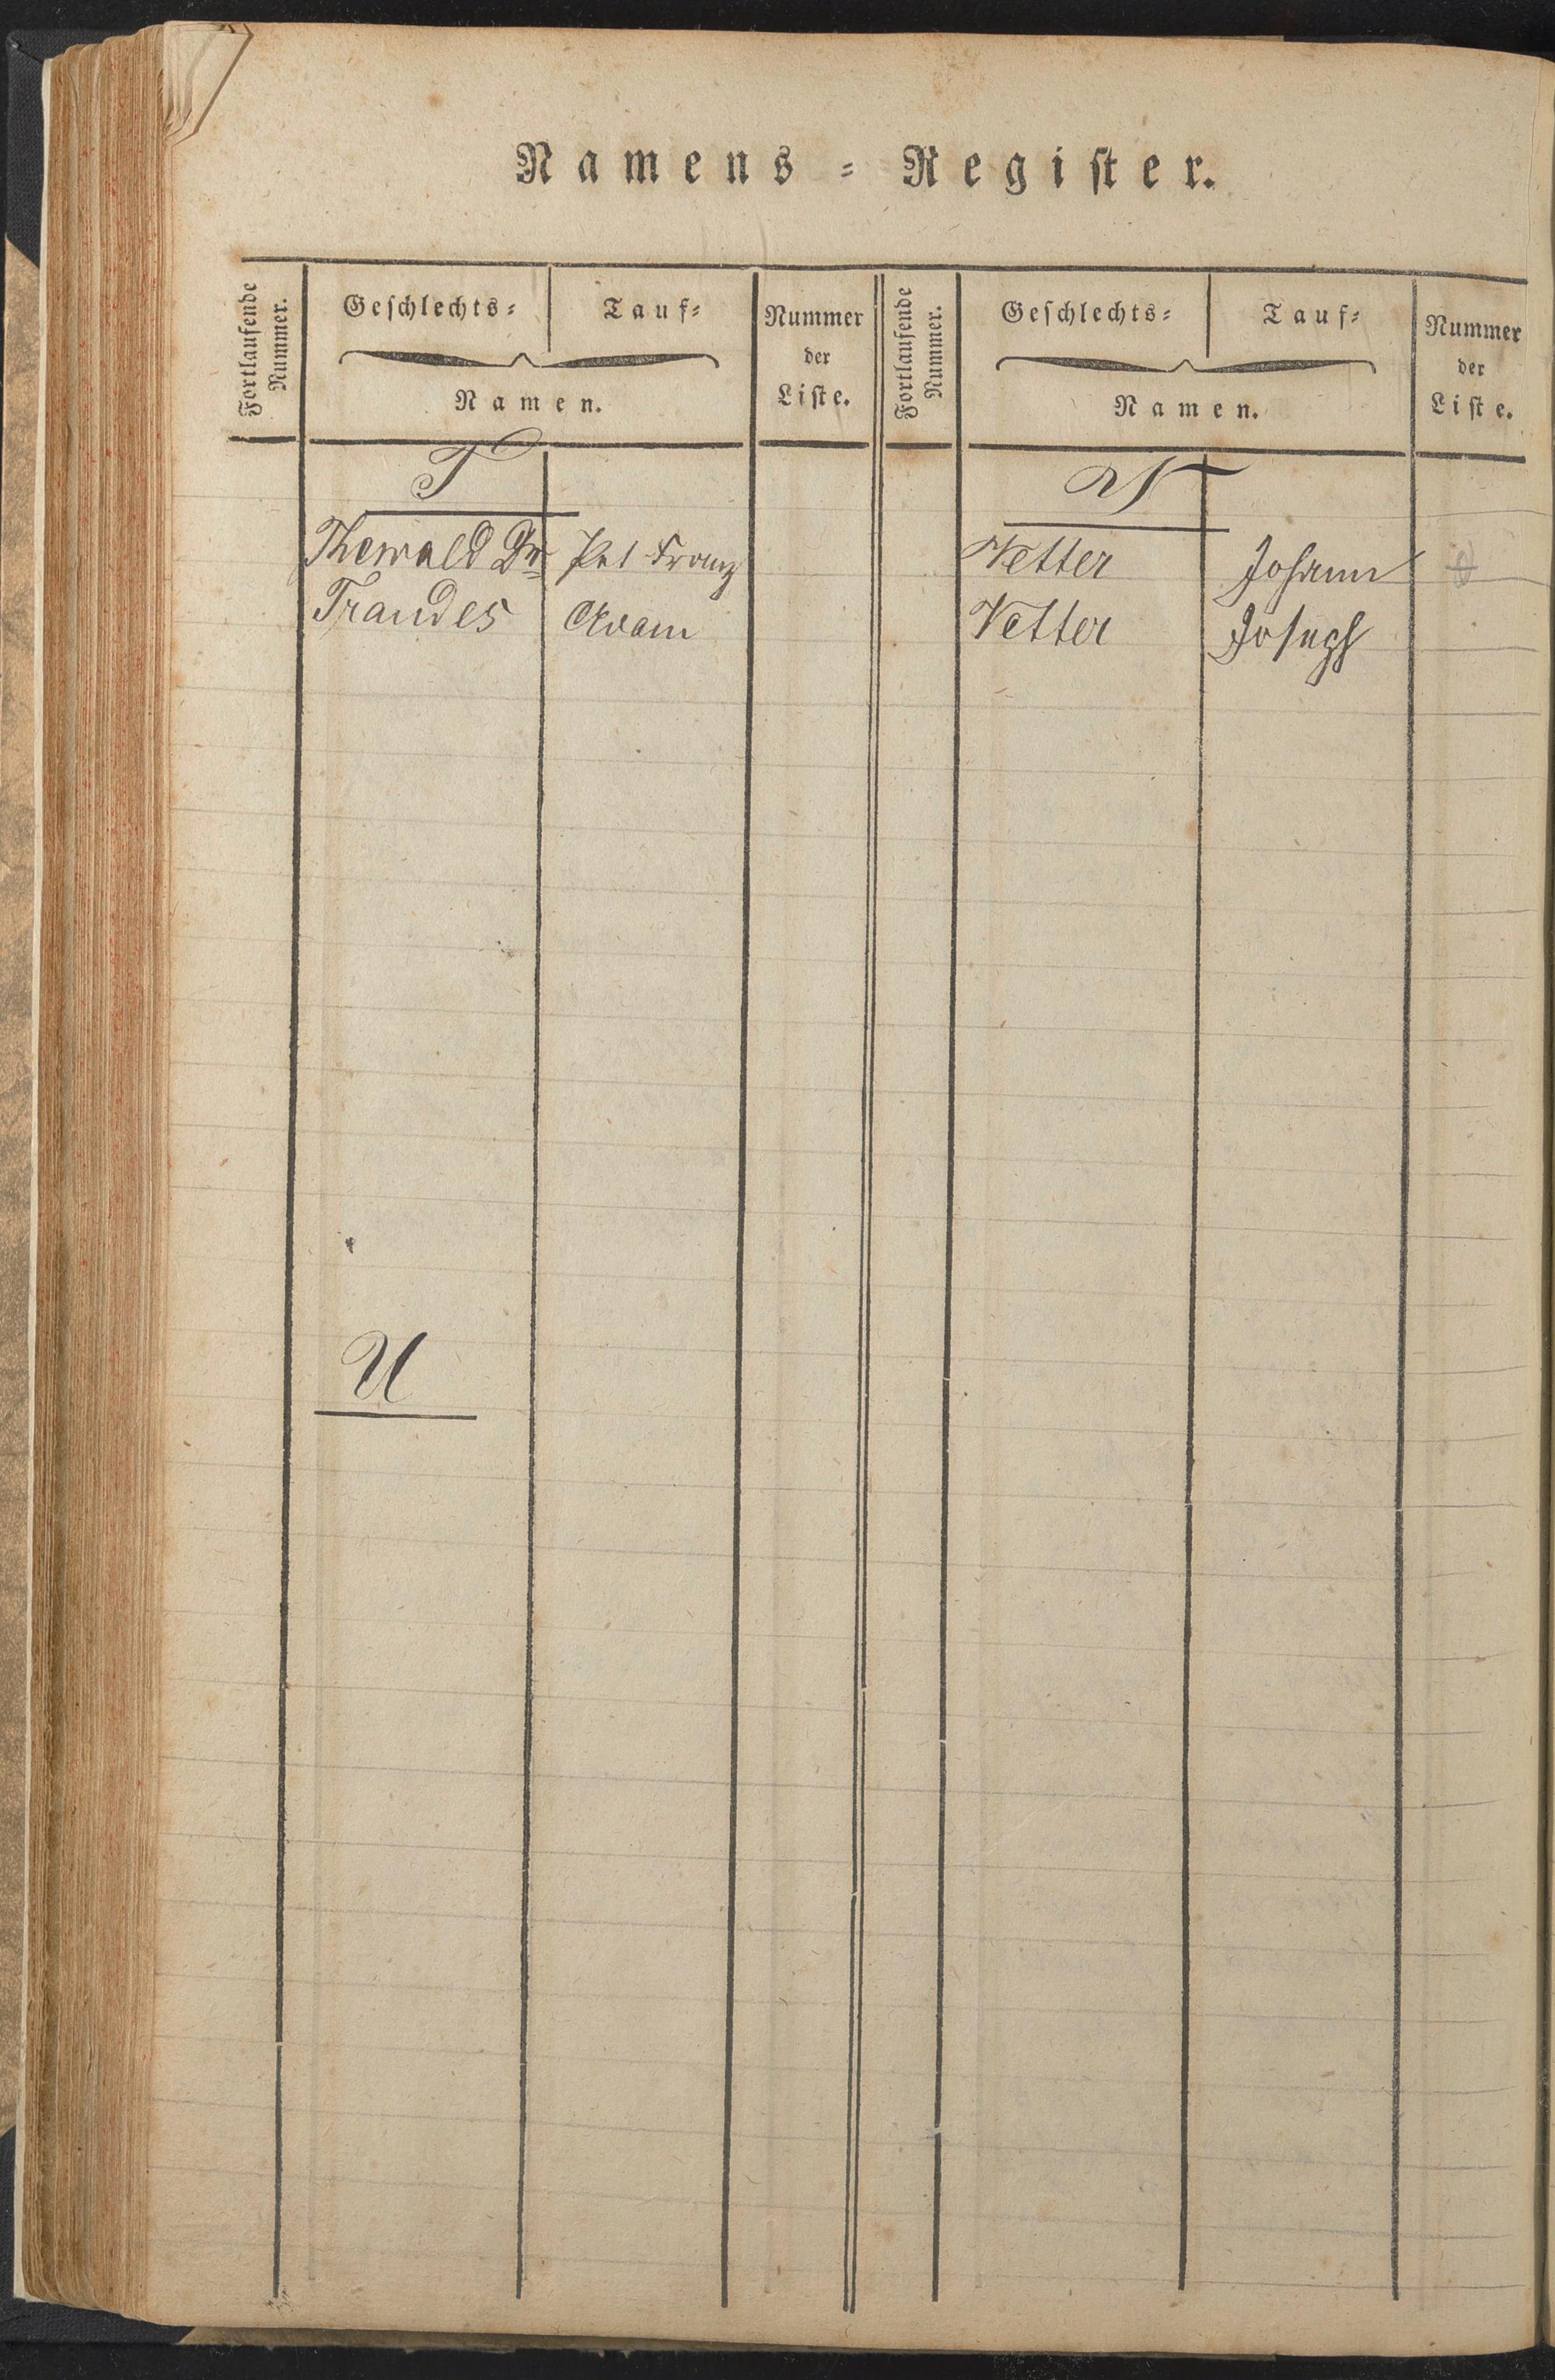 Namens=Register.
Fortlaufende Nummer.
Geschlechts= Tauf=
Namen.
Nummer
der
Liste.
T
Thewald Dr. Pet Franz
Traudes Adam
U
Fortlaufende Nummer.
Geschlechts= Tauf=
Namen.
Nummer
der
Liste.
V
Vetter Johann
Vetter Joseph